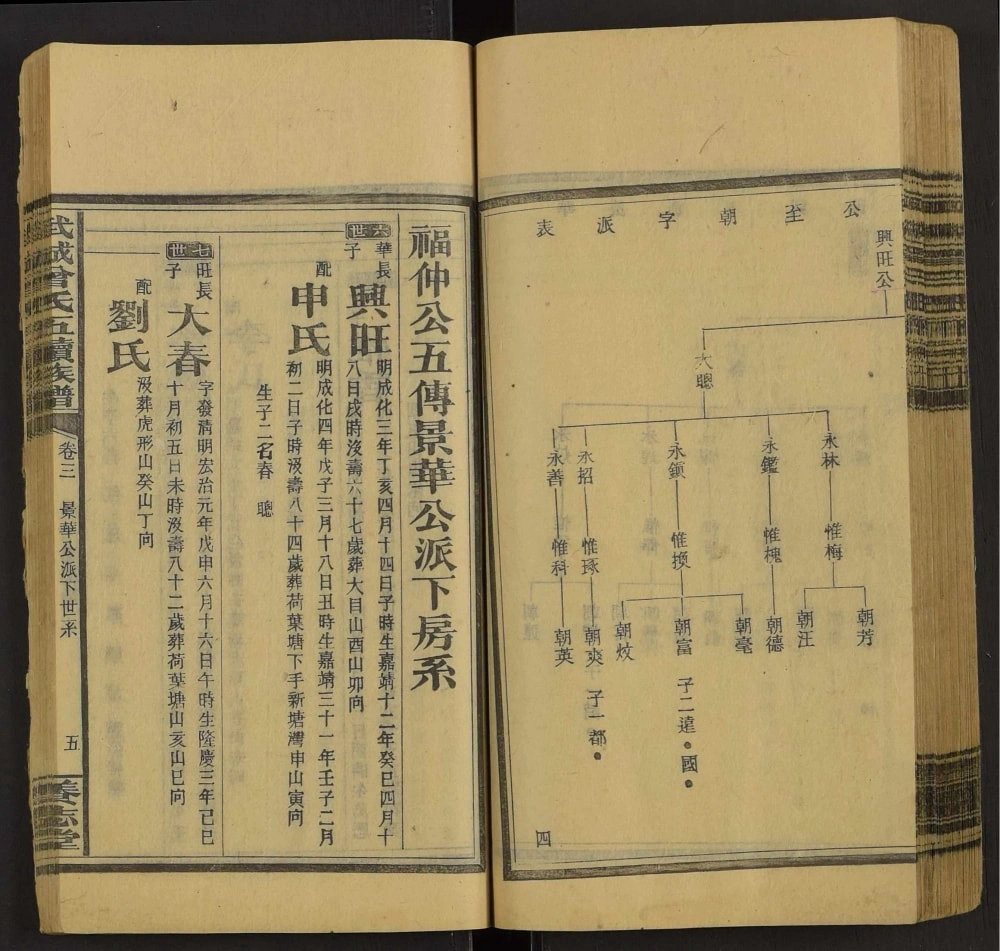 公至朝字派表
興旺公
大聰
永林
永鑑
永鎭
永招
永善
惟梅
惟槐
惟換
惟琢
惟科
朝芳
朝汪
朝德
朝毫
朝富
朝炆
朝爽
朝英
子二遠·國·
子一都·
四
福仲公五傳景華公派下房系
六世
華長子
興旺
明成化三年丁亥四月十四日子時生嘉靖十二年癸巳四月十
八日戌時沒壽六十七歲葬大目山酉山卯向
配
申氏
明成化四年戊子三月十八日丑時生嘉靖三十一年壬子二月
初二日子時沒壽八十四歲葬荷葉塘下手新塘灣申山寅向
生子二名春 聰
七世
旺長子
大春
字發清明宏治元年戊申六月十六日午時生隆慶三年己巳
十月初五日未時沒壽八十二歲葬荷葉塘山亥山巳向
配
劉氏
沒葬虎形山癸山丁向
武城曾氏五續族譜
卷三 景華公派下世系
五
養志堂